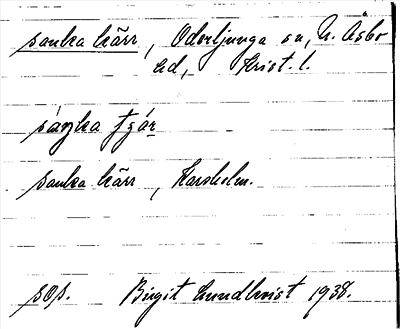 sanka kärr, Oderljunga sn, N. Åsbo
hd, Krist. l.
sáŋka tʃǽr
sanka kärr, Karsholm.
sOs. Birgit Lundkvist 1938.